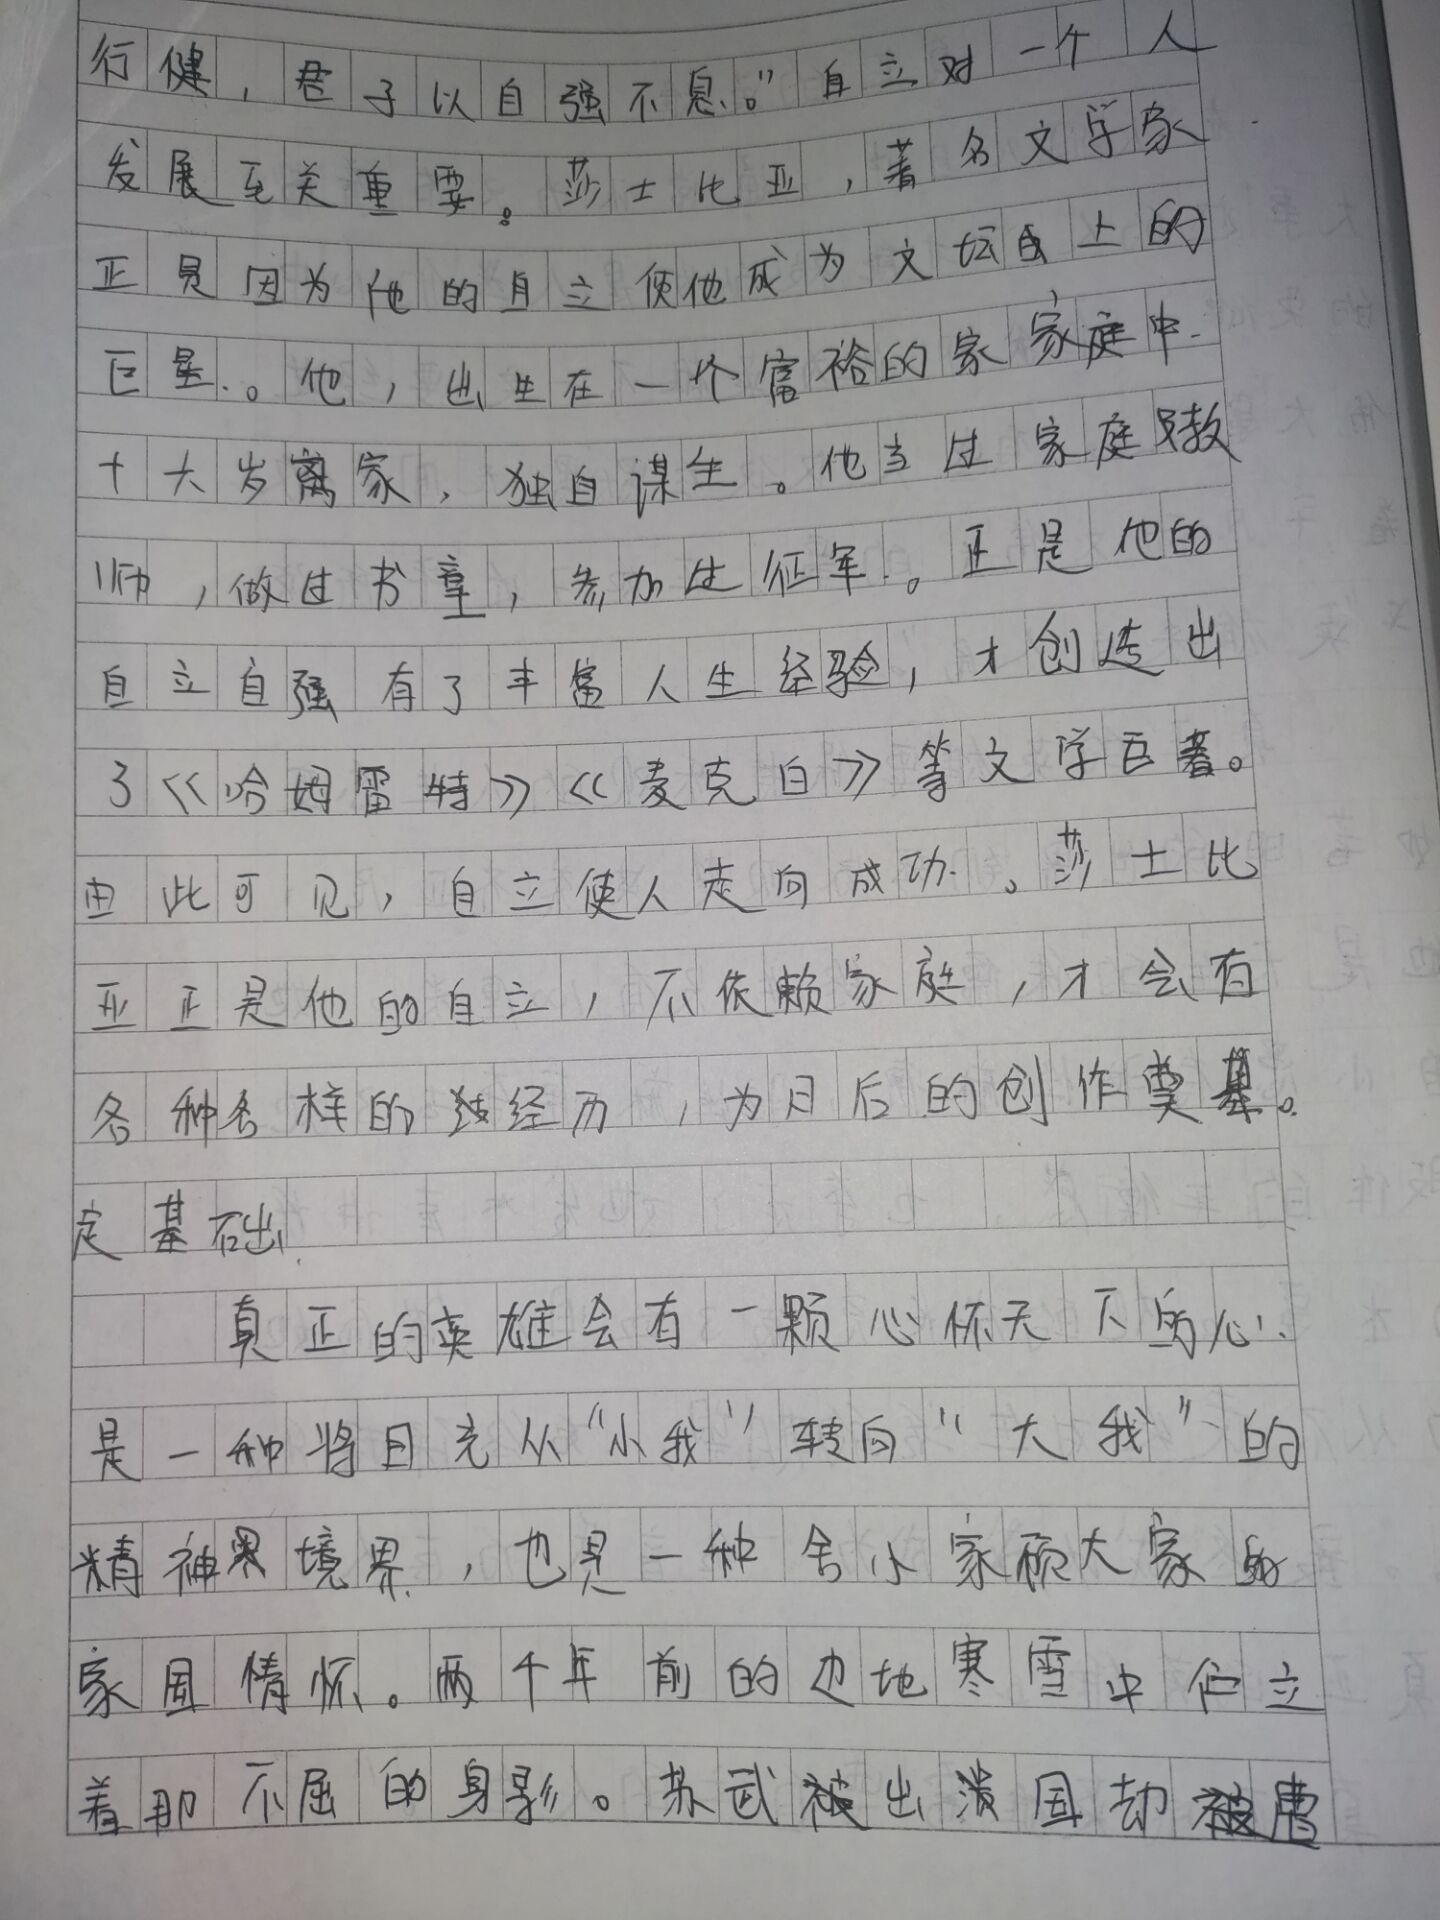 行健，君子以自强不息。”自立对一个人
发展至关重要。莎士比亚，著名文学家
正是因为他的自立使他成为文坛上的
巨星。他，出生在一个富裕的家家庭中
十六岁离家，独自谋生。他当过家庭教
师，做过书童，参加过征军。正是他的
自立自强有了丰富人生经验，才创造出
了《哈姆雷特》《麦克白》等文学巨著。
由此可见，自立使人走向成功。莎士比
亚正是他的自立，不依赖家庭，才会有
各种各样的经历，为日后的创作奠基。
定基础
真正的英雄会有一颗心怀天下的心
是一种将目光从“小我”转向“大我”的
精神境界，也是一种舍小家顾大家的
家国情怀。两千年前的边地寒雪中伫立
着那不屈的身影。苏武出国却遭